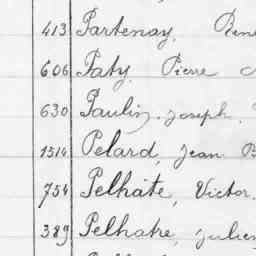 413 Partenay, René
606 Paty, Pierre
630 Paulin, Joseph,
1514 Pelard, Jean B
754 Pelhâte, Victor.
389 Pelhatre, Julien